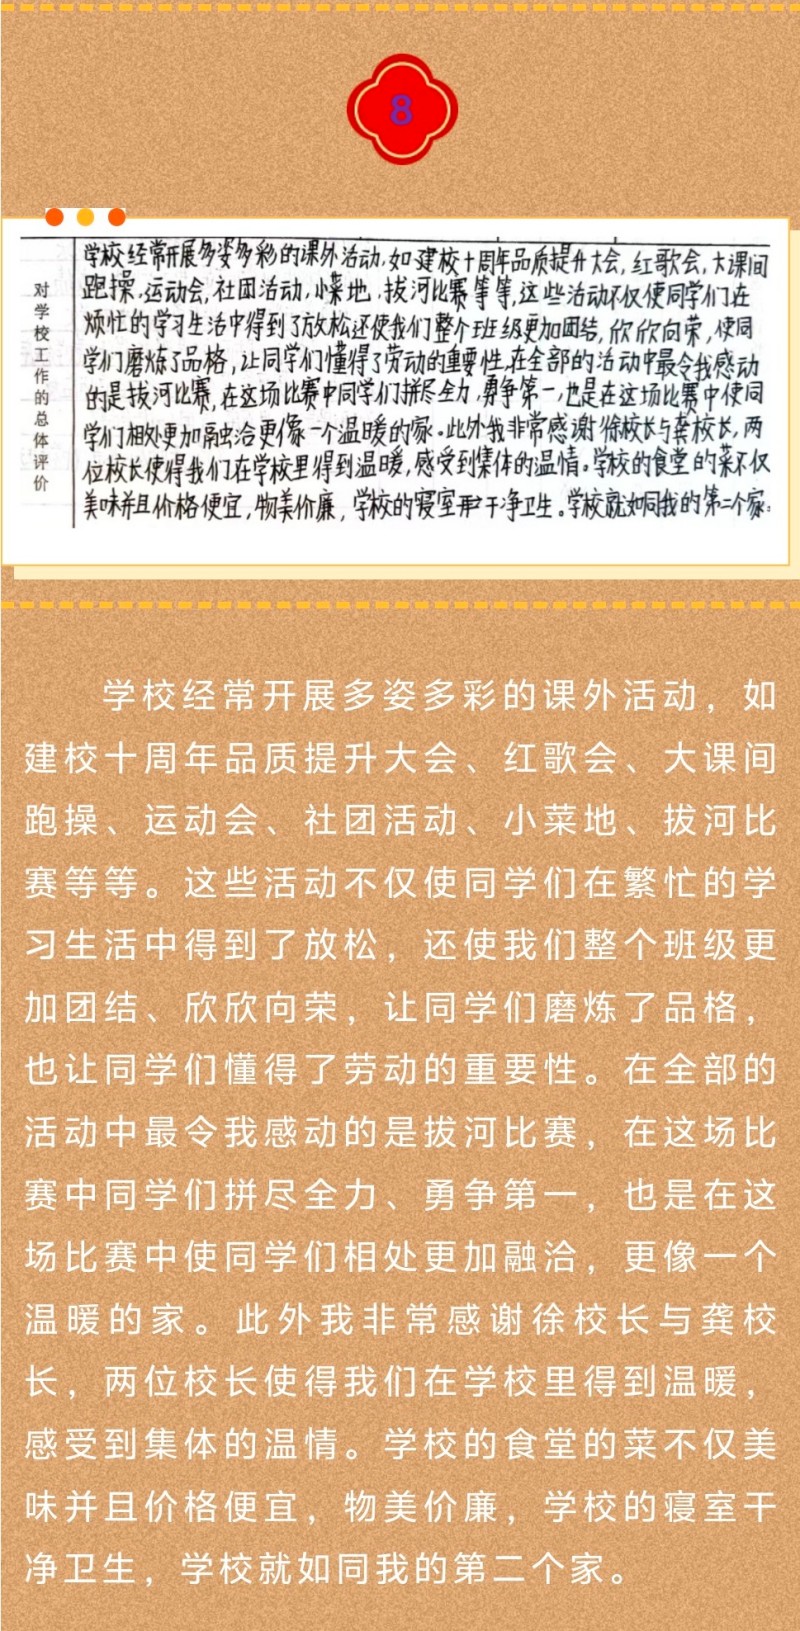 8
对学校工作的总体评价
学校经常开展多姿多彩的课外活动,如建校十周年品质提升大会,红歌会,大课间
跑操,运动会,社团活动,小菜地,拔河比赛等等,这些活动不仅使同学们在
烦忙的学习生活中得到了放松还使我们整个班级更加团结,欣欣向荣,使同
学们磨炼了品格,让同学们懂得了劳动的重要性,在全部的活动中最令我感动
的是拔河比赛,在这场比赛中同学们拼尽全力,勇争第一,也是在这场比赛中使同
学们相处更加融洽更像一个温暖的家。此外我非常感谢徐校长与龚校长,两
位校长使得我们在学校里得到温暖,感受到集体的温情。学校的食堂的菜不仅
美味并且价格便宜,物美价廉,学校的寝室干净卫生。学校就如同我的第二个家。
学校经常开展多姿多彩的课外活动，如
建校十周年品质提升大会、红歌会、大课间
跑操、运动会、社团活动、小菜地、拔河比
赛等等。这些活动不仅使同学们在繁忙的学
习生活中得到了放松，还使我们整个班级更
加团结、欣欣向荣，让同学们磨炼了品格，
也让同学们懂得了劳动的重要性。在全部的
活动中最令我感动的是拔河比赛，在这场比
赛中同学们拼尽全力、勇争第一，也是在这
场比赛中使同学们相处更加融洽，更像一个
温暖的家。此外我非常感谢徐校长与龚校
长，两位校长使得我们在学校里得到温暖，
感受到集体的温情。学校的食堂的菜不仅美
味并且价格便宜，物美价廉，学校的寝室干
净卫生，学校就如同我的第二个家。